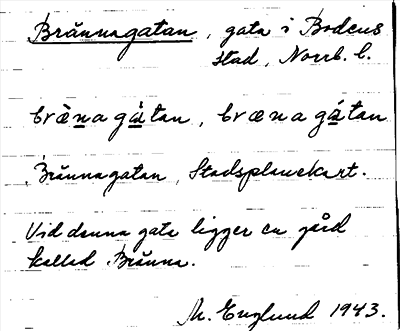 Brännagatan, gata i Bodens
stad, Norrb. l.
bræ̀na gátan, bræna gátan
Brännagatan, Stadsplanekart.
Vid denna gata ligger en gård
kallad Bränna.
M. Englund 1943.